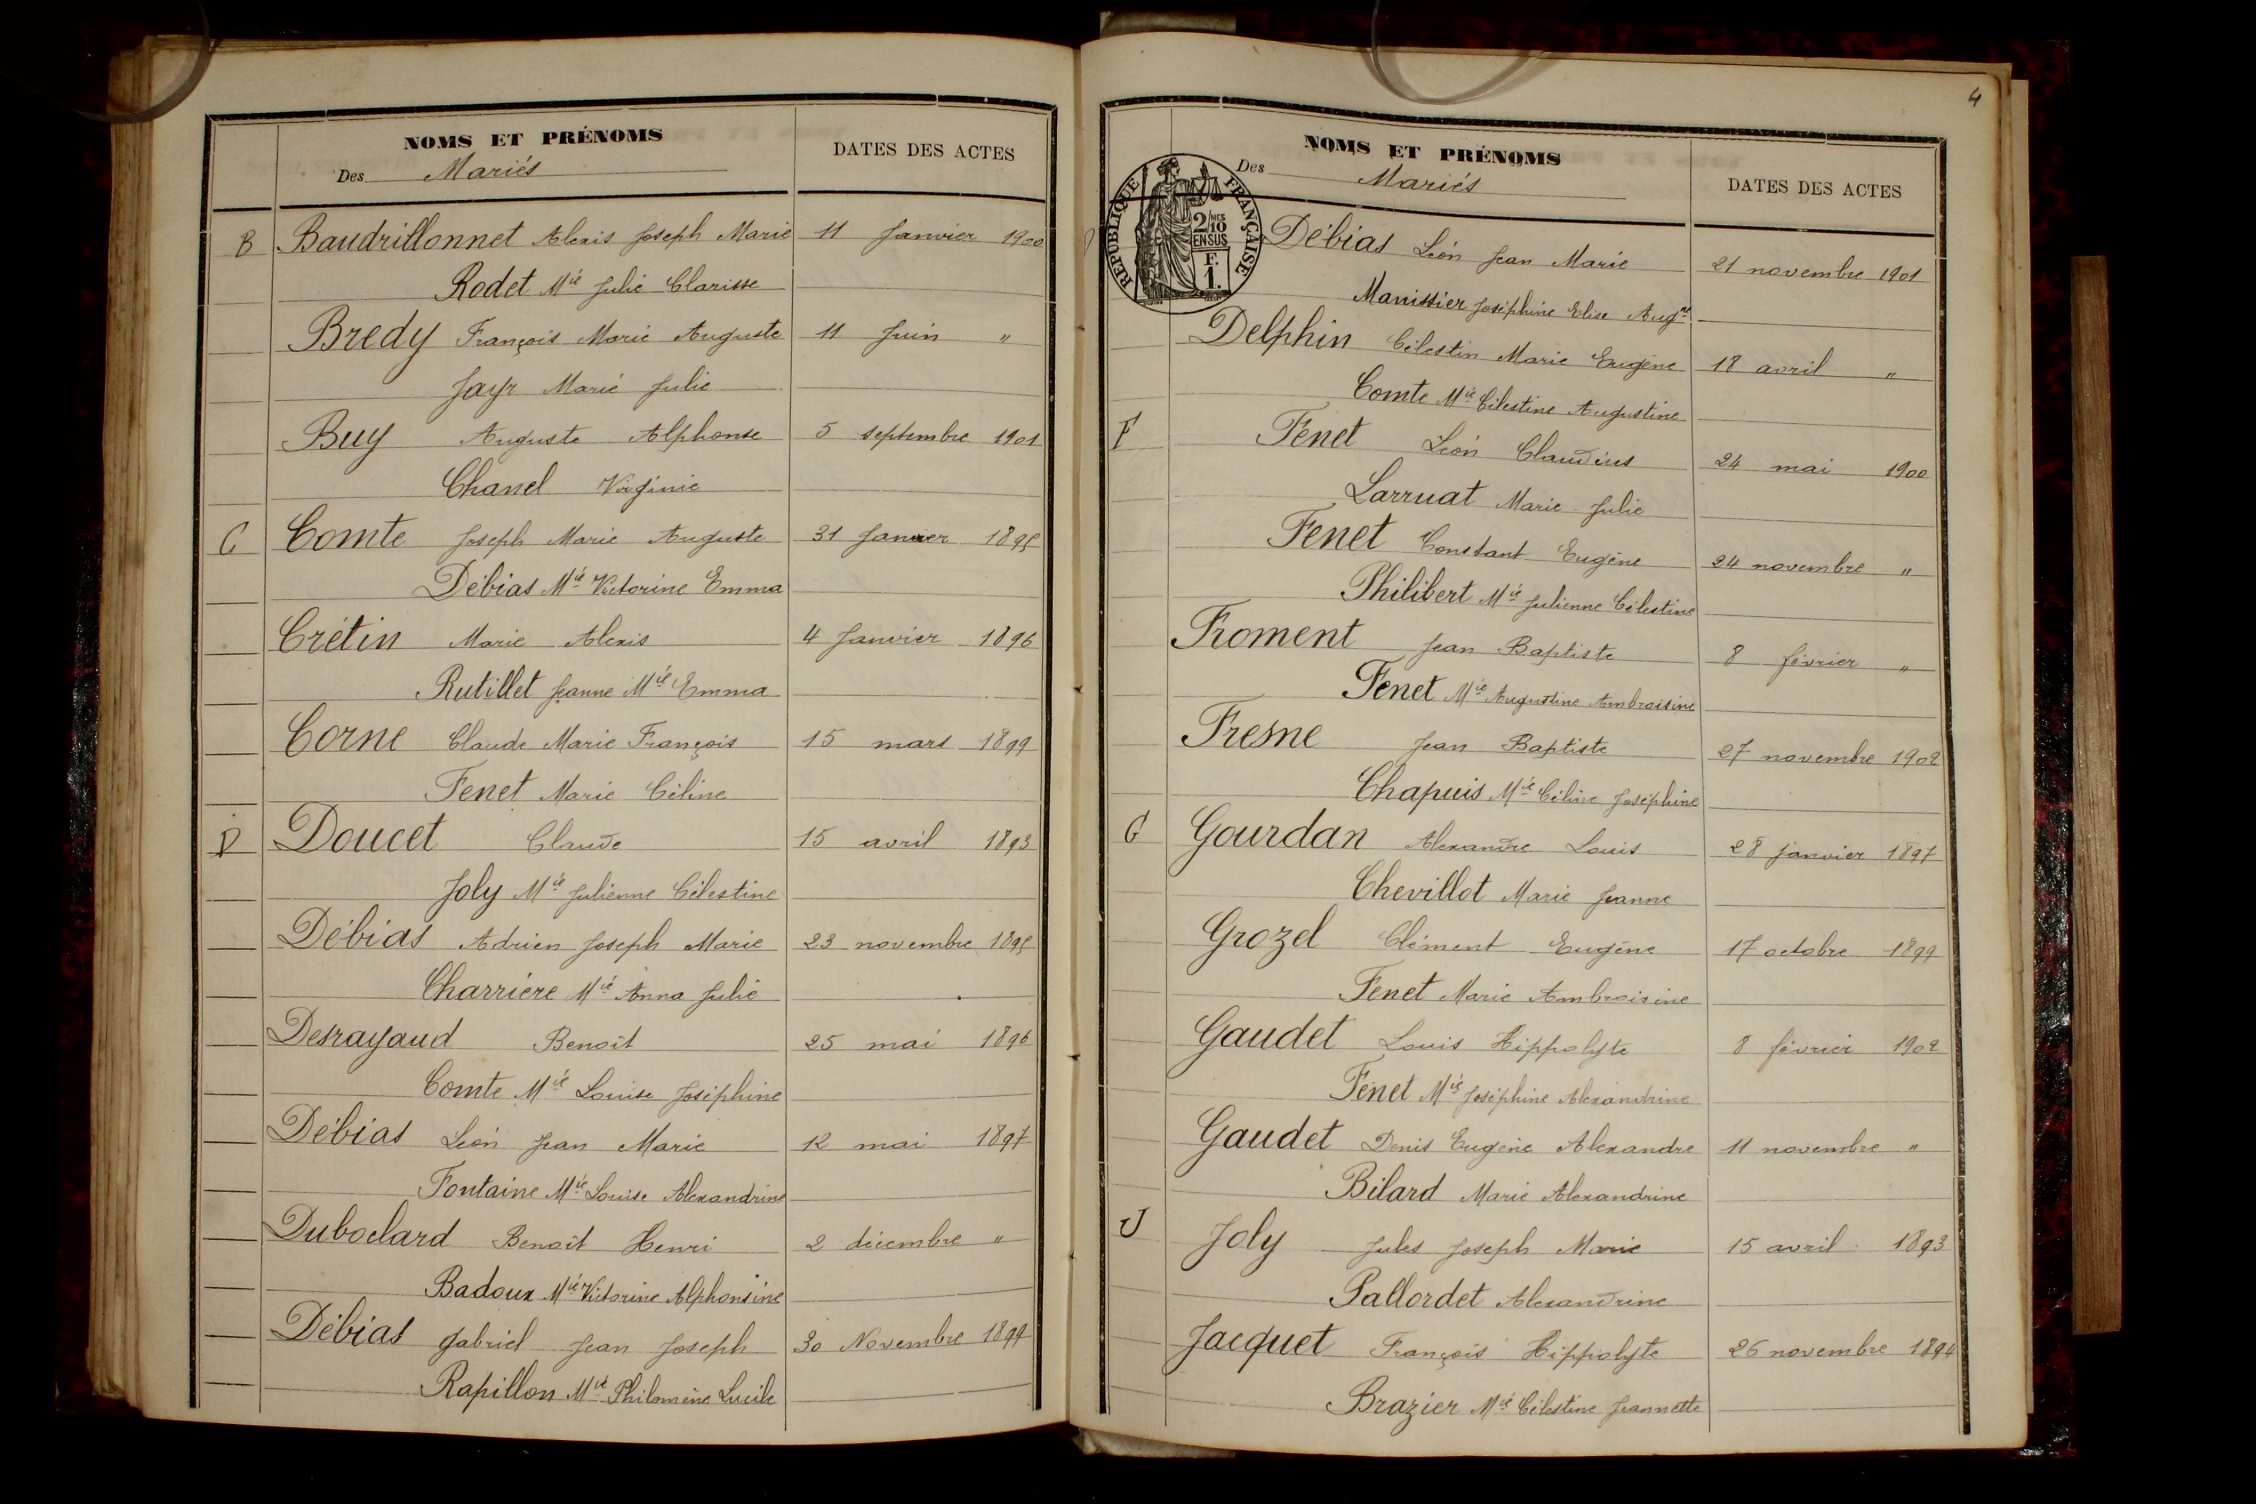 NOMS ET PRÉNOMS
Des Mariés
DATES DES ACTES
B Baudrillonnet Alexis Joseph Marie 11 Janvier 1900
Rodet Mie Julie Clarisse
Bredy François Marie Auguste 11 Juin "
Jayr Marie Julie
Buy Auguste Alphonse 5 septembre 1901
Chanel Virginie
C Comte Joseph Marie Auguste 31 Janvier 1895
Débias Mie Victorine Emma
Crétin Marie Alexis 4 Janvier 1896
Rutillet Jeanne Mie Emma
Corne Claude Marie François 15 mars 1899
Fenet Marie Céline
D Doucet Claude 15 avril 1893
Joly Mie Julienne Célestine
Débias Adrien Joseph Marie 23 novembre 1895
Charrière Mie Anna Julie
Desrayaud Benoit 25 mai 1896
Comte Mie Louise Joséphine
Débias Léon Jean Marie 12 mai 1897
Fontaine Mie Louise Alexandrine
Duboclard Benoit Henri 2 décembre "
Badoux Mie Victorine Alphonsine
Débias Gabriel Jean Joseph 30 Novembre 1899
Rapillon Mie Philomène Lucile
4
NOMS ET PRÉNOMS
Des Mariés
DATES DES ACTES
RÉPUBLIQUE FRANÇAISE
2/10 MES
EN SUS
F.
1.
Débias Léon Jean Marie 21 novembre 1901
Manissier Joséphine Elise Augne
Delphin Célestin Marie Eugène 18 avril "
Comte Mie Célestine Augustine
F Fenet Léon Claudius 24 mai 1900
Larruat Marie Julie
Fenet Constant Eugène 24 novembre "
Philibert Mie Julienne Célestine
Froment Jean Baptiste 8 février "
Fenet Mie Augustine Ambroisine
Fresne Jean Baptiste 27 novembre 1902
Chapuis Mie Céline Joséphine
G Gourdan Alexandre Louis 28 janvier 1897
Chevillot Marie Jeanne
Grozel Clément Eugène 17 octobre 1899
Fenet Marie Ambroisine
Gaudet Louis Hippolyte 8 février 1902
Fenet Mie Joséphine Alexandrine
Gaudet Denis Eugène Alexandre 11 novembre "
Bilard Marie Alexandrine
J Joly Jules Joseph Marie 15 avril 1893
Pallordet Alexandrine
Jacquet François Hippolyte 26 novembre 1894
Brazier Mie Célestine Jeannette